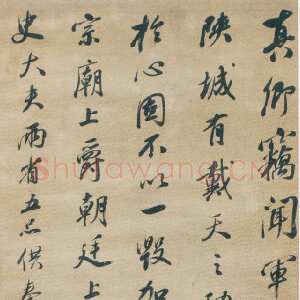 真卿竊聞軍
陝城有戴天之
於心固不以一毀加
宗廟上爵朝廷上
史大夫兩省五品供奉